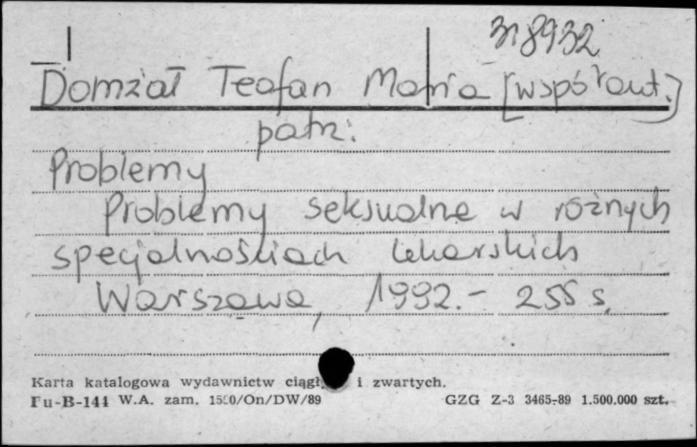 318932
Domżał Teofan Maria [współaut.]
patrz:
Problemy
Problemy seksualne w różnych
specjalnościach lekarskich
Warszawa, 1992.- 255 s.
Karta katalogowa wydawnictw ciągł i zwartych.
Pu-B-141 W.A. zam. /On/DW/89 GZG Z-3 3465-89 1.500.000 szt.